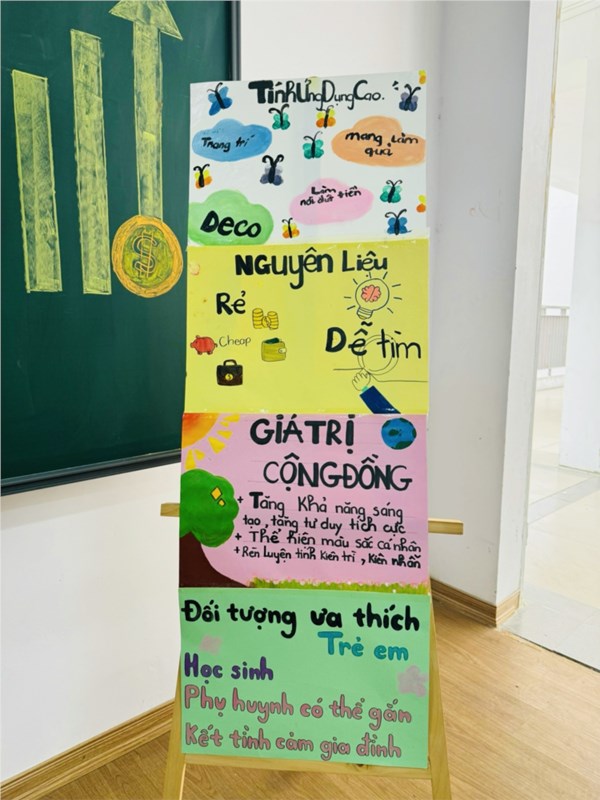 Tính Ứng Dụng Cao.
Trang trí
mang làm quà
Làm nổi đứt tiền
Deco
NGuyên Liệu
Rẻ
Cheap
Dễ tìm
$
GIÁ TRỊ
CỘNG ĐỒNG
+ Tăng khả năng sáng
tạo, tăng tư duy tích cực
+ Thể hiện màu sắc cá nhân
+ Rèn luyện tính kiên trì, kiên nhẫn
Đối tượng ưa thích
Trẻ em
Học sinh
Phụ huynh có thể gắn
kết tình cảm gia đình